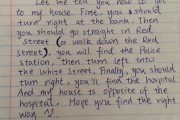 Let me tell you how to get
to my house. First, you should
turn right at the bank. Then
you should go straight in Red
Street (or walk down the Red
street), you will find the Police
station, then turn left into
the White street. Finally, you should
turn right, you'll find the hospital
And my house is opposite of the
hospital. Hope you find the right
way